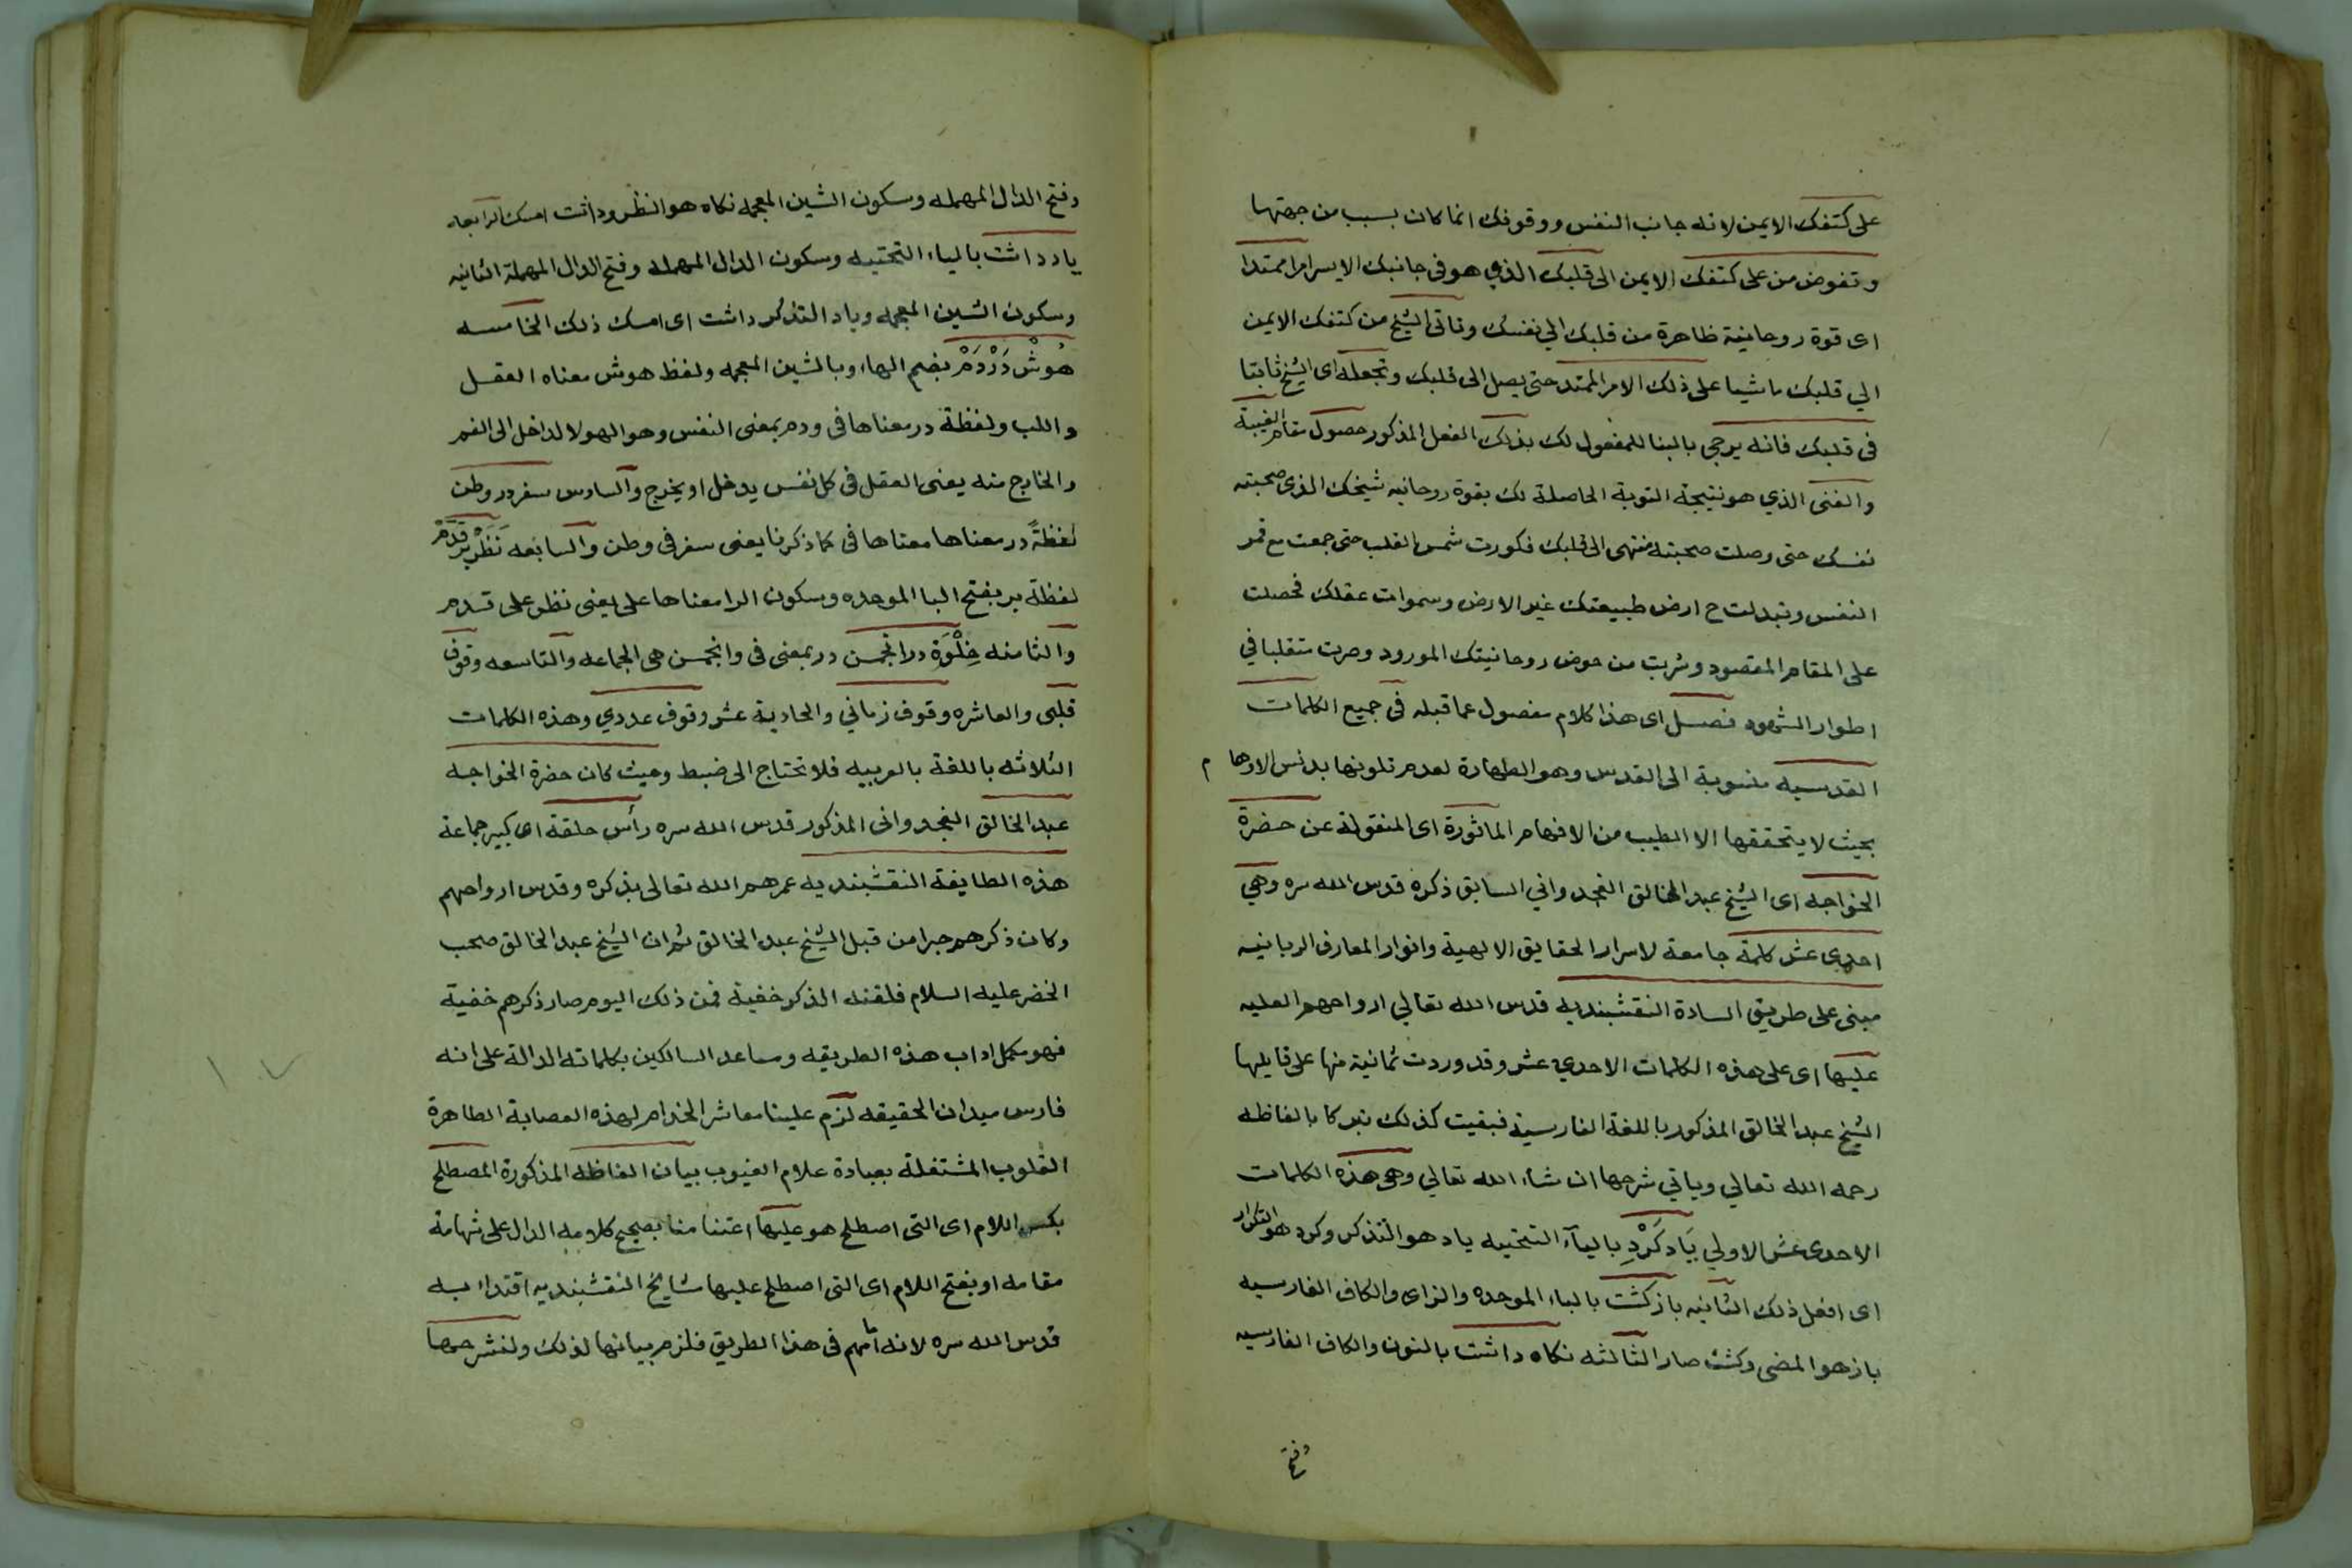 على كتفك الايمن لانه جانب النفس ووقوفك انما كان بسبب من جهتها
وتفوض من على كتفك الايمن الى قلبك الذي هو فى جانبك الايسر امرا ممتدا
اى قوة روحانية ظاهرة من قلبك الي نفسك وتاتى الشيخ من كتفك الايمن
الي قلبك ماشيا على ذلك الامر الممتد حتى يصل الى قلبك وتجعله اى الشيخ ثابتا
فى قلبك فانه يرجى بالبنا للمفعول لك بذلك الفعل المذكور حصول مقام الغيبة
والفنى الذي هو نتيجة التوبة الحاصلة لك بقوة روحانيه شيخك الذى صحبته
نفسك حتى وصلت صحبته منتهى الى قلبك فكورت شمس القلب حتى جمعت مع قمر
النفس وتبدلت ح ارض طبيعتك غير الارض وسموات عقلك فحصلت
على المقام المقصود وشربت من حوض روحانيتك المورود وصرت متقلبا في
اطوار الشهود فصل اى هذا كلام مفصول عما قبله فى جميع الكلمات
القدسيه منسوبة الى القدس وهو الطهارة لعدم تلونها بدنس الاوها م
بحيث لا يتحققها الا الطيب من الافهام الماثورة اى المنقولة عن حضرة
الخواجه اى الشيخ عبد الخالق الغجدواني السابق ذكره قدس الله سره وهي
احدى عشر كلمة جامعة لاسرار الحقايق الالهية وانوار المعارف الربانيه
مبنى على طريق السادة النقشبنديه قدس الله تعالي ارواحهم العليه
عليها اى على هذه الكلمات الاحدي عشر وقد وردت ثمانية منها على قايلها
الشيخ عبد الخالق المذكور باللغة الفارسية فبقيت كذلك تبركا بالفاظه
رحمه الله تعالي وياتي شرحها ان شاء الله تعالي وهى هذه الكلمات
الاحدى عشر الاولي يَاد كَرْدِ باليآء التحتيه ياد هو التذكر وكرد هو التكرار
اى افعل ذلك الثانيه بازكشت بالباء الموحده والزاى والكاف الفارسيه
باز هو المضى وكشت صار الثالثه نكاه داشت بالنون والكاف الفارسيه
وفتح
وفتح الدال المهمله وسكون الشين المعجمه نكاه هو النظر وداشت امسك الرابعه
ياد داشت بالياء التحتيه وسكون الدال المهمله وفتح الدال المهملة الثانيه
وسكون الشين المعجمه وياد التذكر داشت اى امسك ذلك الخامسه
هُوشْ دَرْدَمْ بضم الهاء وبالشين المعجمه ولفظ هوش معناه العقل
واللب ولفظة در معناها فى ودم بمعنى النفس وهو الهوا لداخل الى الفم
والخارج منه يعنى العقل فى كل نفس يدخل او يخرج والسادس سفر در وطن
لفظةً در معناها معناها فى كما ذكرنا يعنى سفر فى وطن والسابعه نَظَرْ بَرْ قَدَمْ
لفظة بر بفتح البا الموحده وسكون الرا معناها على يعنى نظر على قدم
والثامنه خِلْوَة در انجمن در بمعنى فى وانجمن هى الجماعه والتاسعه وقوف
قلبى والعاشره وقوف زماني والحادية عشر وقوف عددي وهذه الكلمات
الثلاثه باللغة بالعربيه فلا تحتاج الى ضبط وحيث كان حضرة الخواجه
عبد الخالق الغجدوانى المذكور قدس الله سره رأس حلقة اى كبير جماعة
هذه الطايفة النقشبنديه عمرهم الله تعالى بذكره وقدس ارواحهم
وكان ذكرهم جهرا من قبل الشيخ عبد الخالق ثم ان الشيخ عبد الخالق صحب
الخضر عليه السلام فلقنه الذكر خفية فمن ذلك اليوم صار ذكرهم خفية
فهو مكمل اداب هذه الطريقه ومساعد السالكين بكلماته الدالة على انه
فارس ميدان الحقيقه لزم علينا معاشر الخدام لهذه العصابة الطاهرة
القلوب المشتغلة بعبادة علام الغيوب بيان الفاظه المذكورة المصطلح
بكسر اللام اى التى اصطلح هو عليها اعتنا منا بصحيح كلامه الدال على شهامة
مقامه او بفتح اللام اى التى اصطلح عليها مشايخ النقشبنديه اقتداء به
قدس الله سره لانه امامهم فى هذا الطريق فلزم بيانها لذلك ولنشرحها